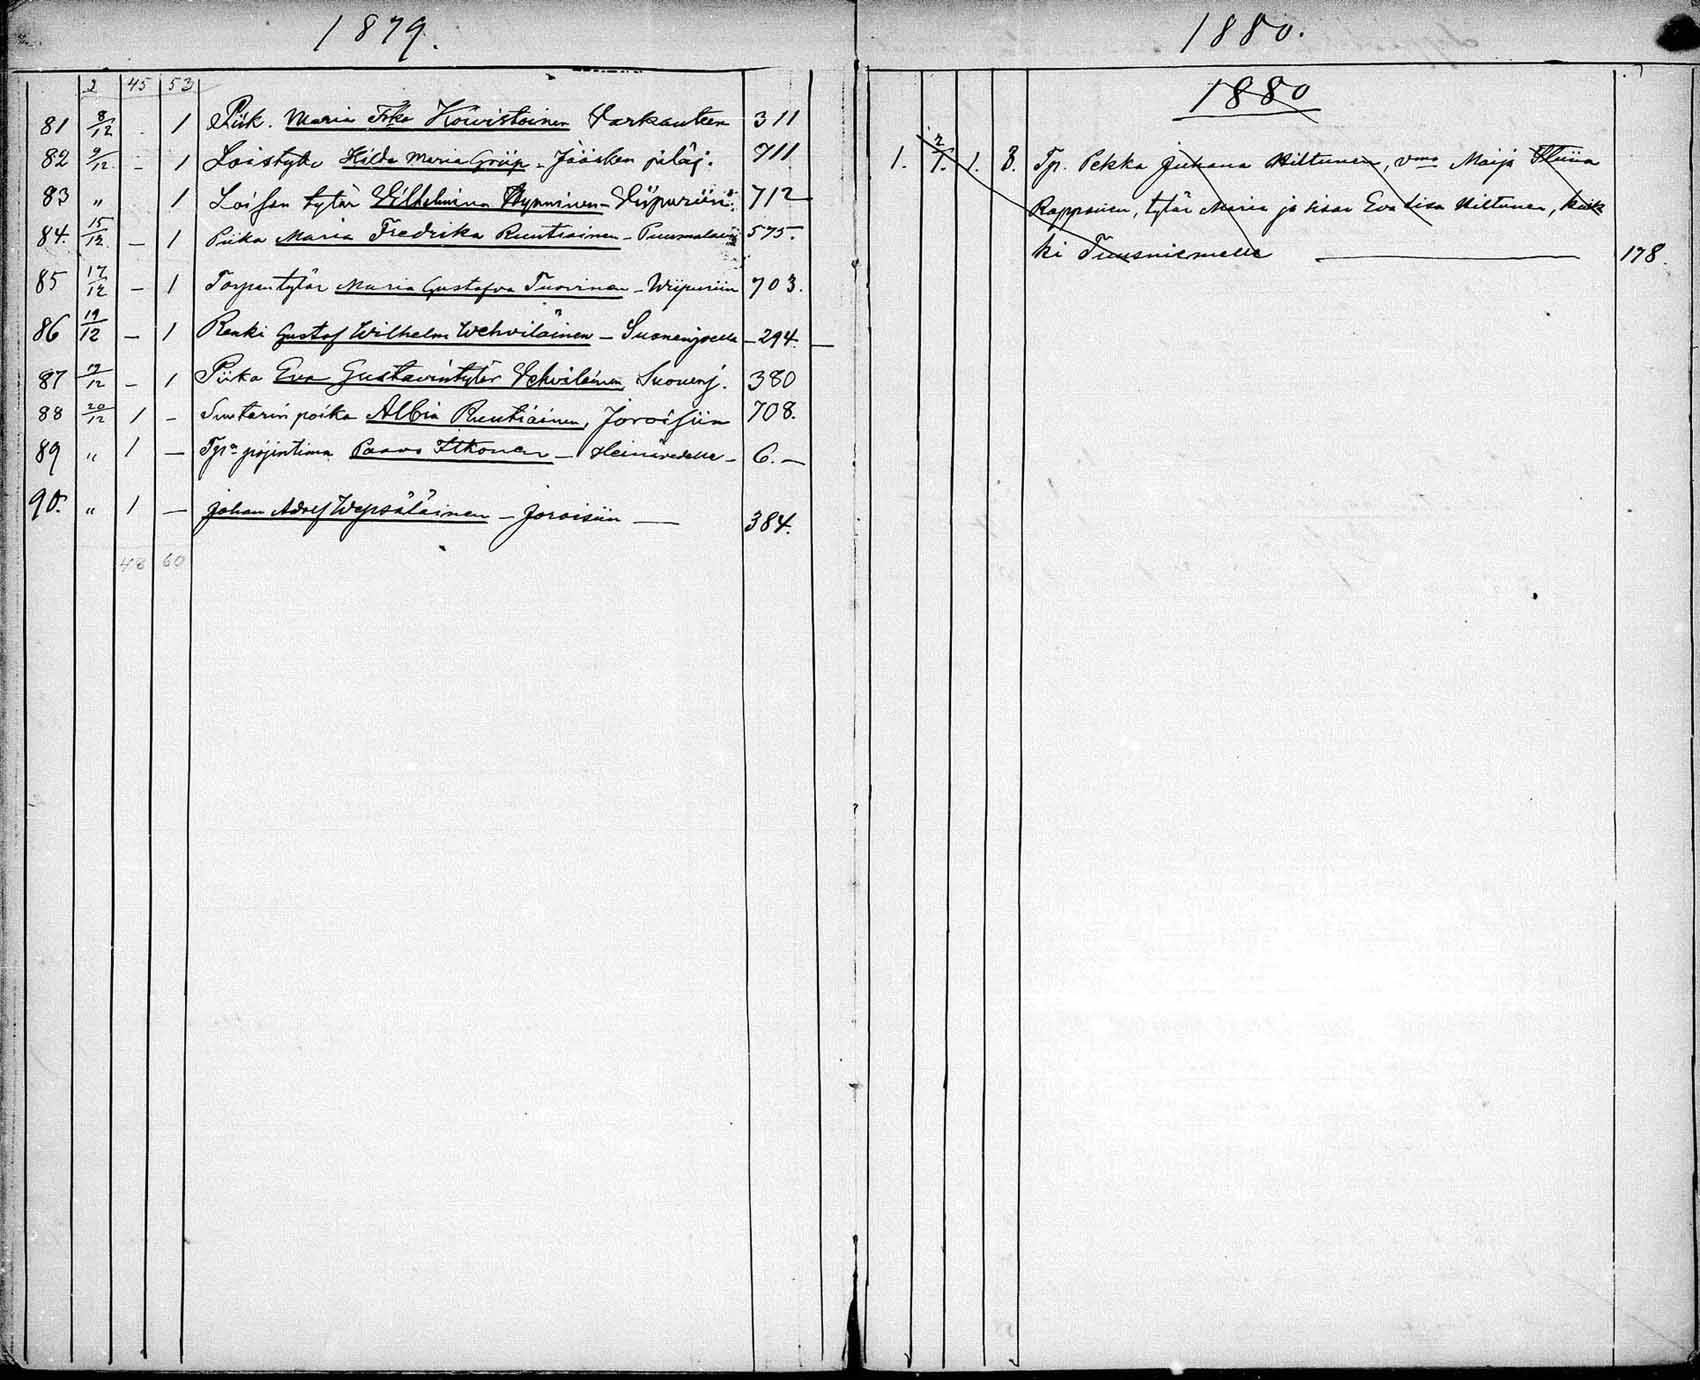 1879.
2 45 53
81 8/12 - 1 Piik. Maria Frka Kowistoinen Varkauteen 311
82 9/12 - 1 Loistytär Hilda Maria Griip - Jääsken pitäj. 711
83 " 1 Loisen tytär Vilhelmina Hynninen - Viipuriin 712
84. 15/12 - 1 Piika Maria Fredrika Ruutiainen - Puumalaan 575.
85 17/12 - 1 Torpantytär Maria Gustafva Tuovinen - Wiipuriin 703.
86 19/12 - 1 Renki Gustaf Wilhelm Wehviläinen - Suonenjoelle - 294. -
87 19/12 - 1 Piika Eva Gustavintytär Vehviläinen Suonenj. 380
88 20/12 1 - Suutarin poika Albin Ruutiainen, Joroisiin 708.
89 " 1 - Paavo Itkonen - Heinävedelle - 6. -
90. " 1 - Johan Adolf Wepsäläinen - Joroisiin - 384.
48 60
1880.
1880
1. 2/1. 1. 3. Tp. Pekka Juhana Hiltunen, vmo Maija Stiina
Rapponen, tytär Maria ja sisar Eva Lisa Hiltunen, kaik
ki Tuusniemelle 178.